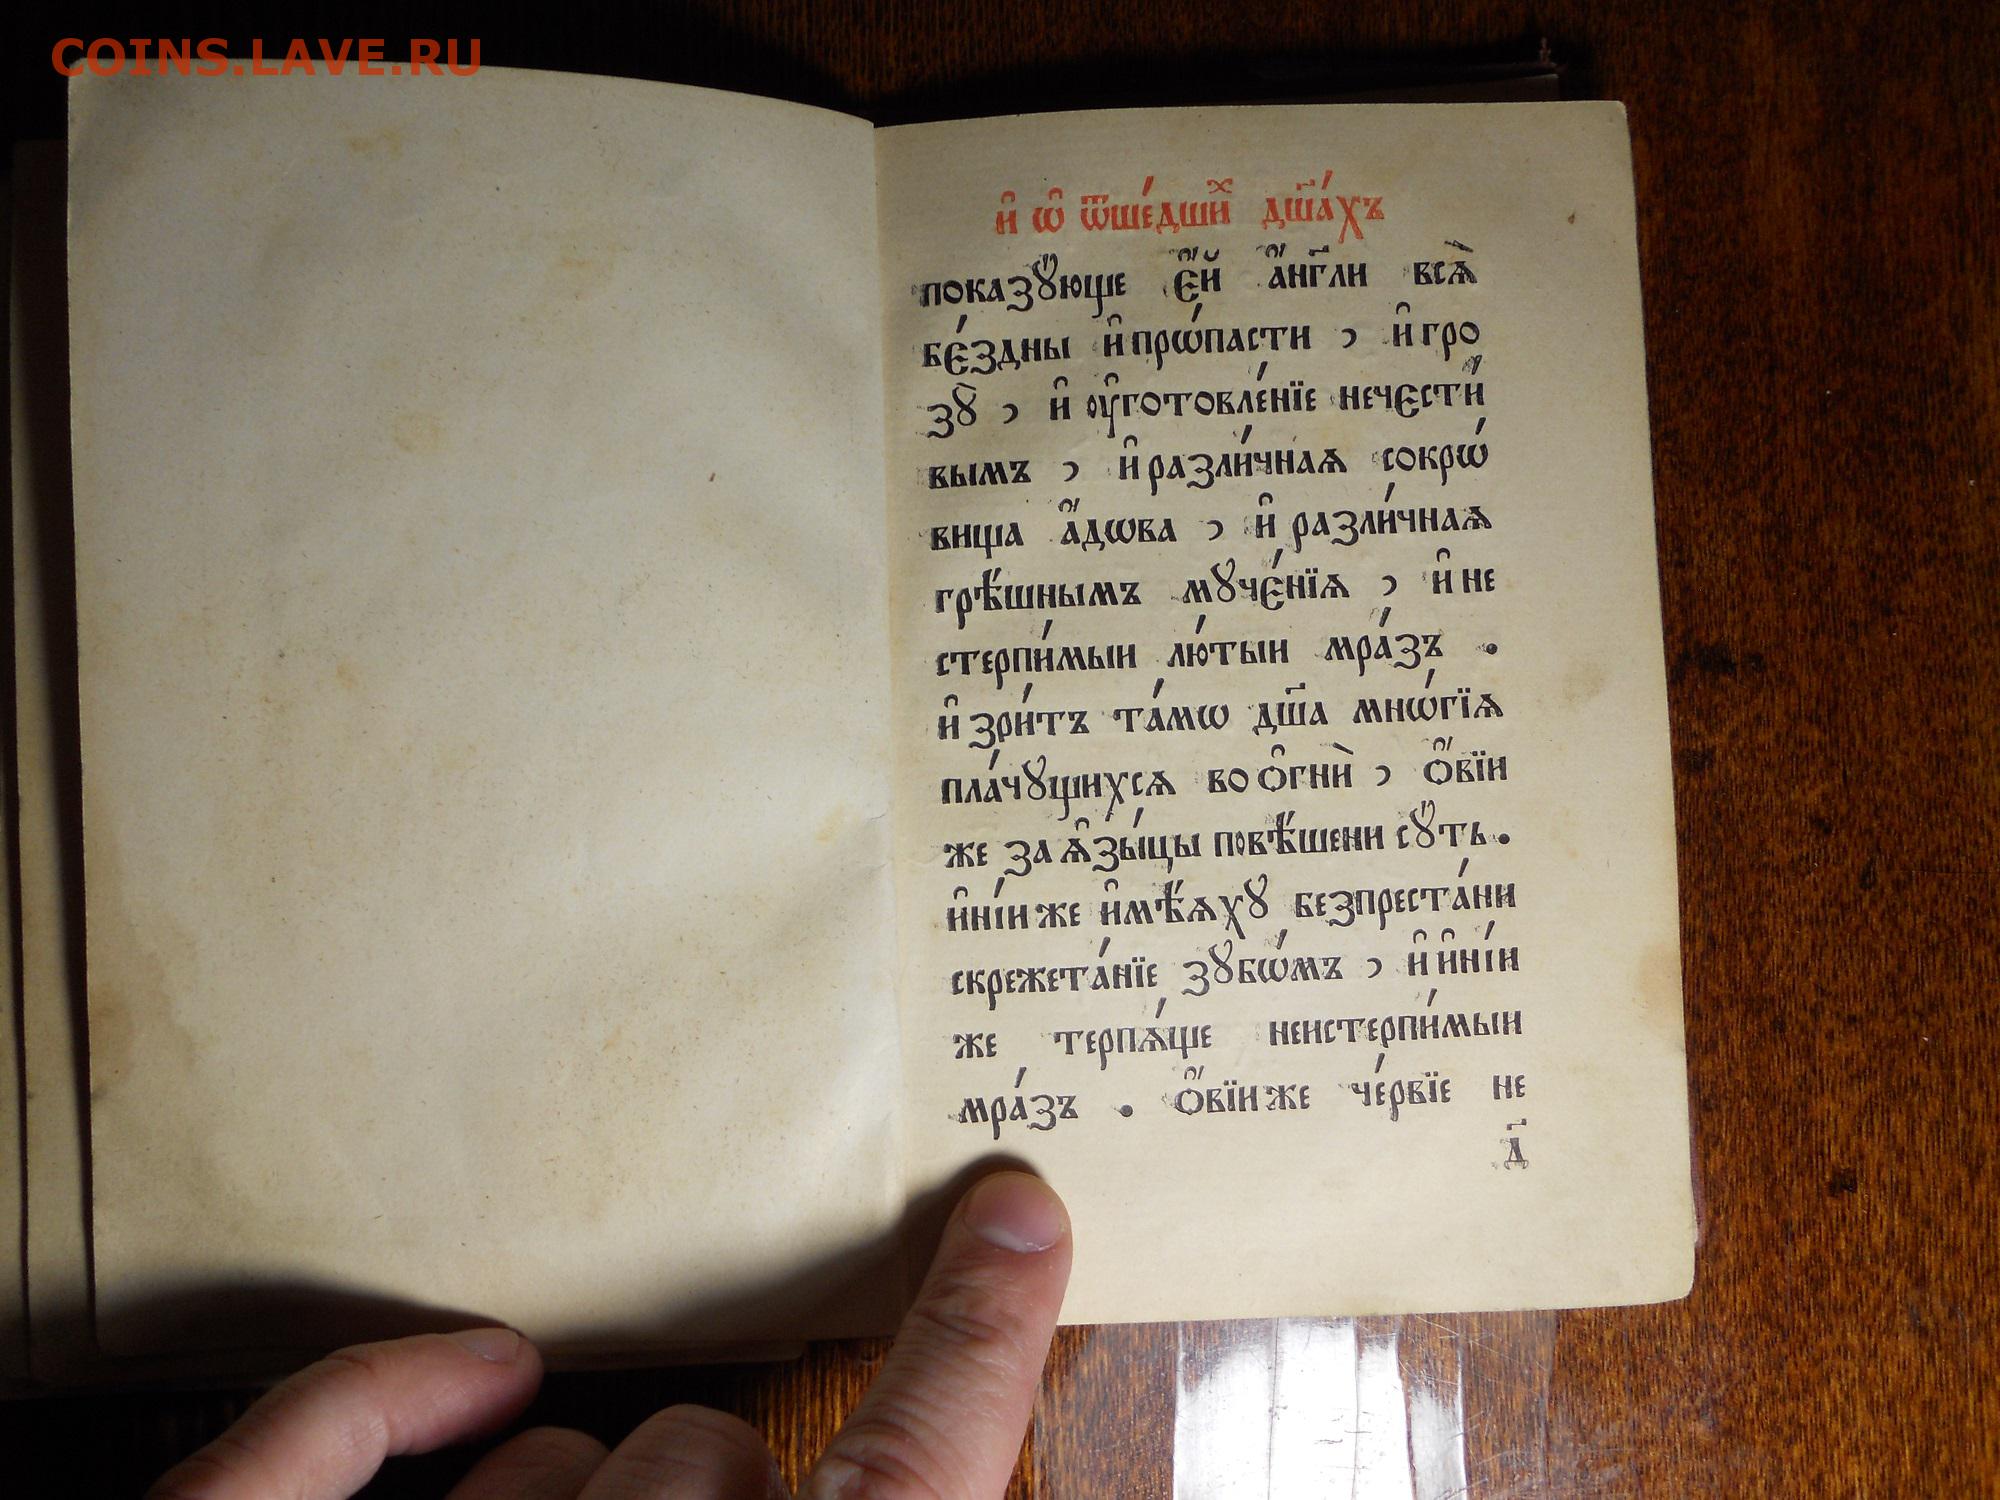 COINS.LAVE.RU
и҆ ѡ҆ ѿше́дшиⷯ дш҃а́хъ
показꙋ́юще є҆́й а҆́нг҃ли всѧ̀
бє́здны и҆ прѡ́пасти , и҆ гро
зꙋ̀ , и҆ оу҆готовле́нїе нечєсти́
вымъ , и҆ разли́чнаѧ сокрѡ́
вища а҆́дѡва , и҆ разли́чнаѧ
грѣ́шнымъ мꙋчє́нїѧ , и҆ не
стерпи́мыи лю́тыи мра́зъ .
и҆ зри́тъ та́мѡ дш҃а мнѡ́гїѧ
пла́чꙋщихсѧ во ѻ҆гнѝ , ѻ҆́вїи
же за ѧ҆зы́цы повѣ́шени сꙋ́ть .
и҆ні́и же и҆мѣ́ѧхꙋ безпреста́ни
скрежета́нїе зꙋбѡ́мъ , и҆ и҆ні́и
же терпѧ́ще неистерпи́мыи
мра́зъ . ѻ҆́вїи же че́рвїе не
д҃